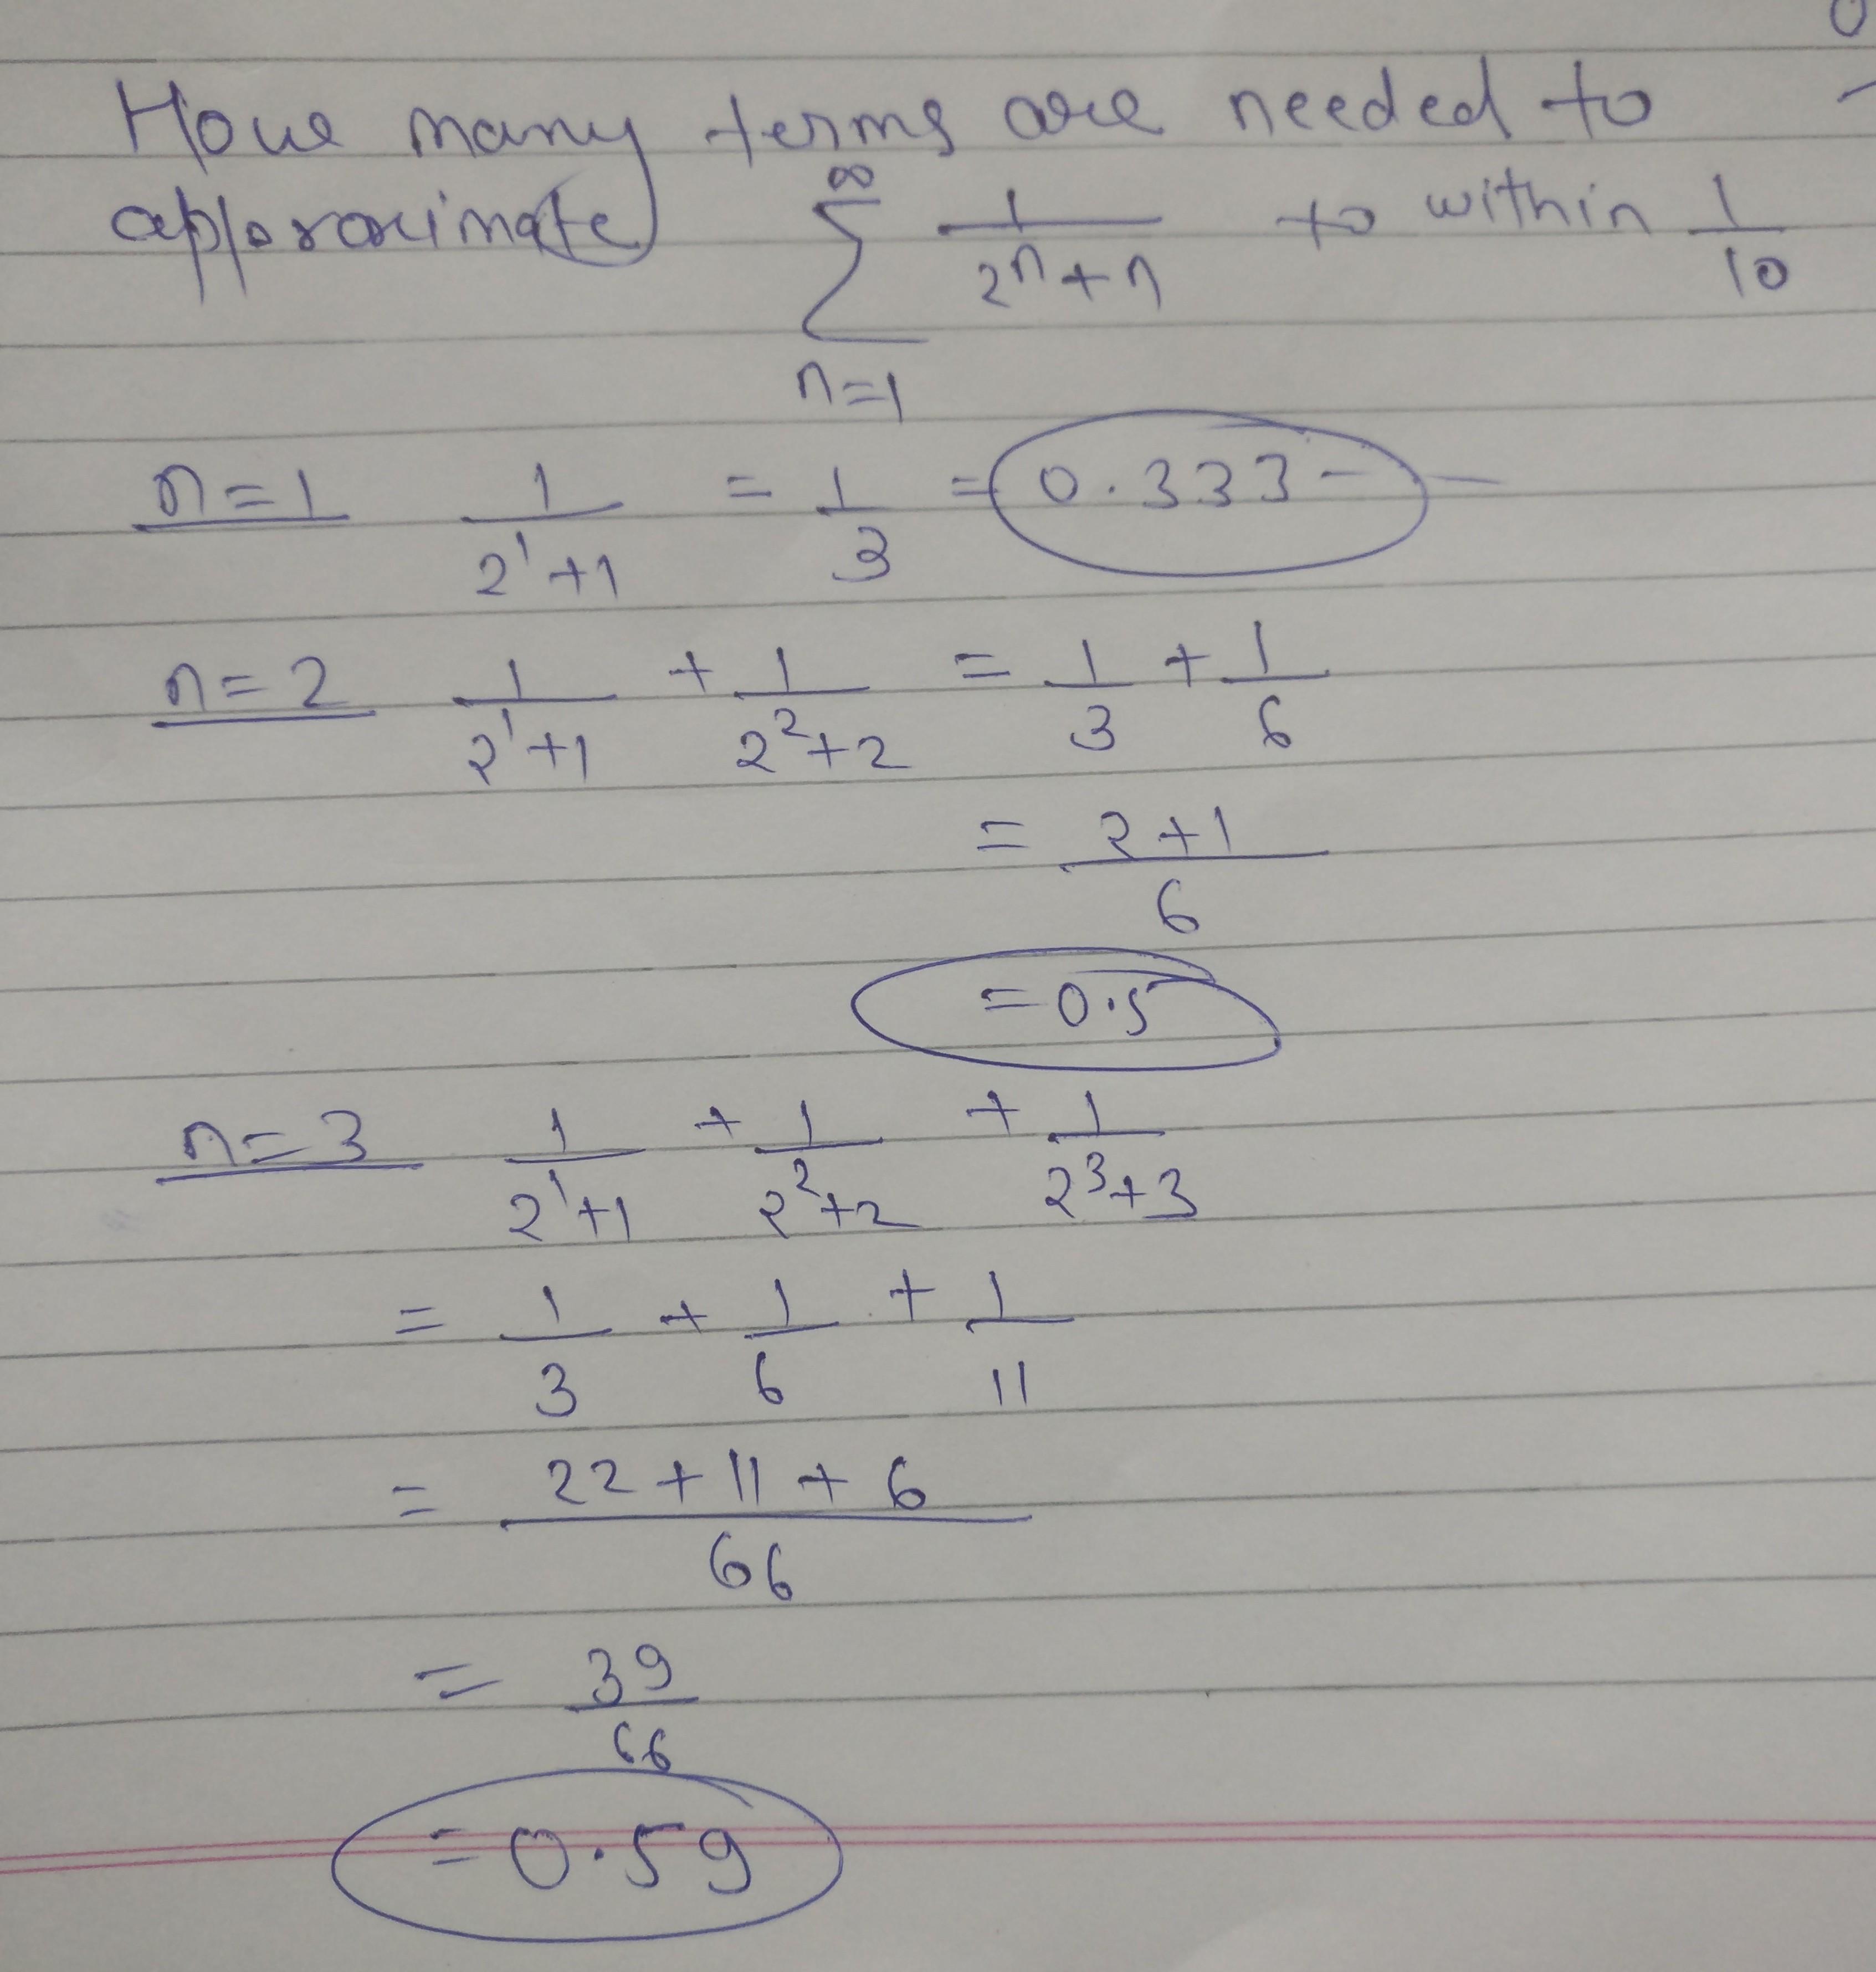 Howe many terms are needed to
approximate ∞∑n=1 1/(2^n+n) to within 1/10
n=1 1/(2^1+1) = 1/3 = 0.333--
n=2 1/(2^1+1) + 1/(2^2+2) = 1/3 + 1/6
= (2+1)/6
= 0.5
n=3 1/(2^1+1) + 1/(2^2+2) + 1/(2^3+3)
= 1/3 + 1/6 + 1/11
= (22+11+6)/66
= 39/66
= 0.59